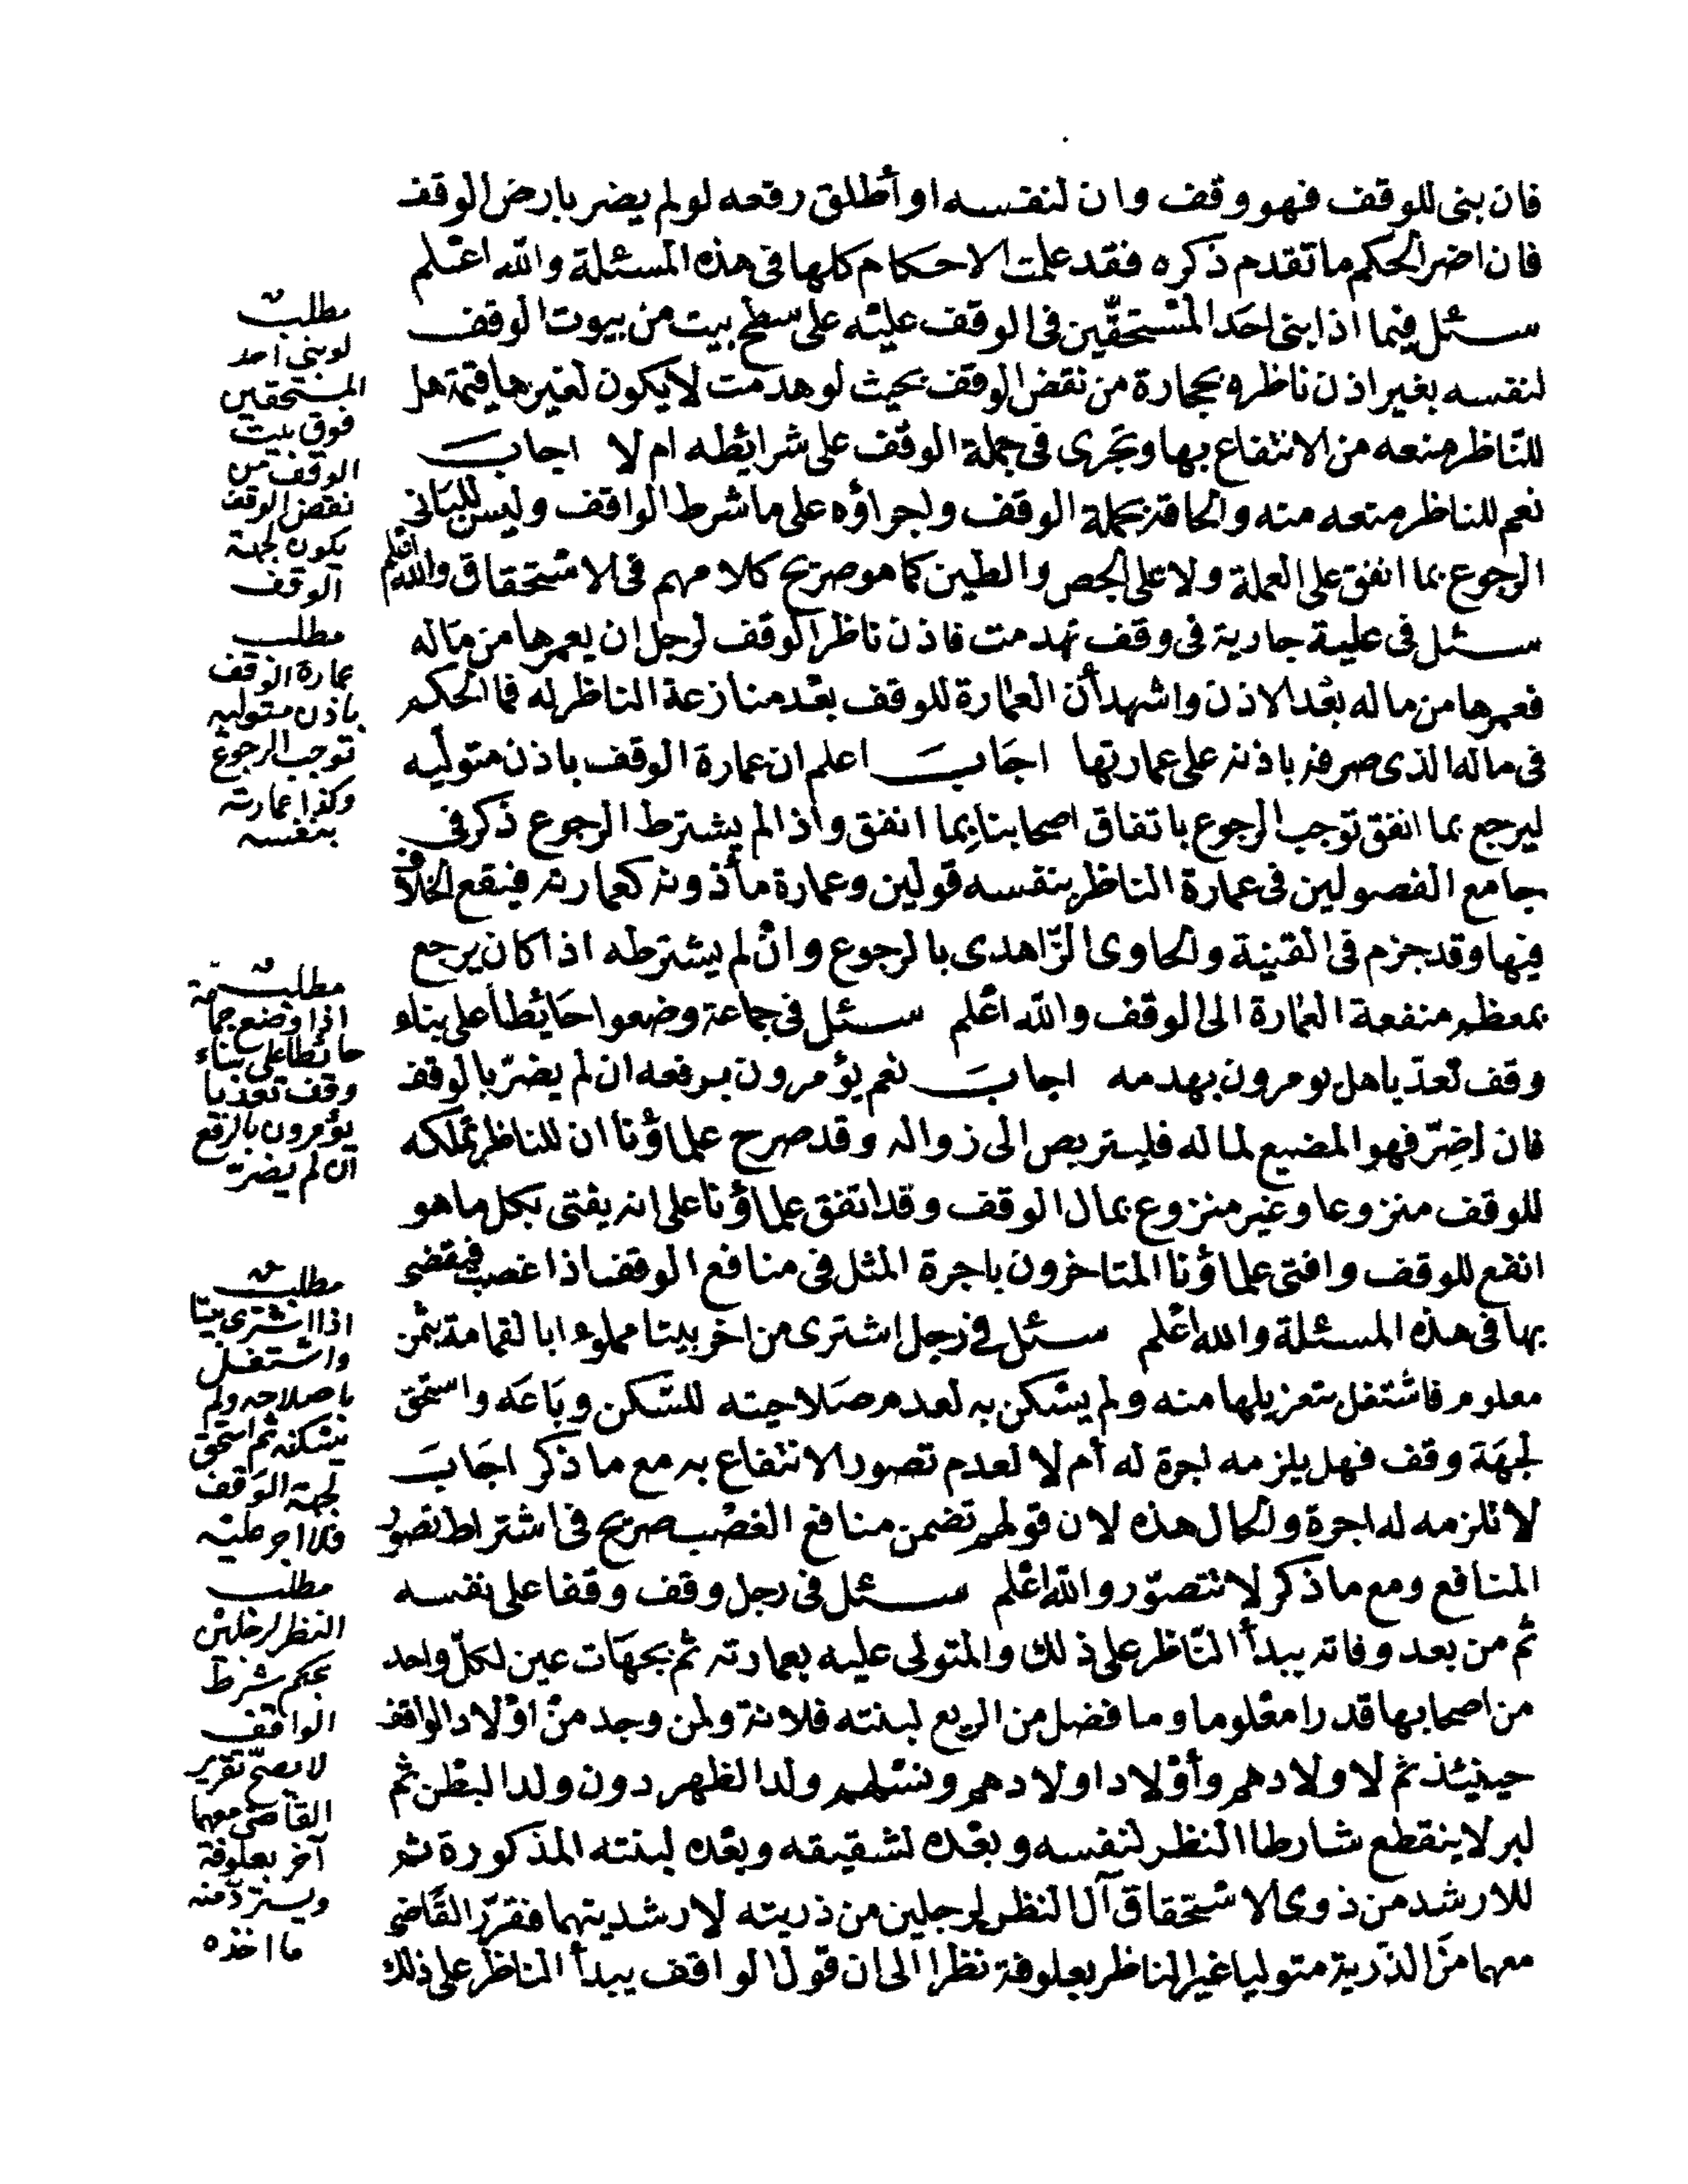 فان بنى للوقف فهو وقف وان لنفسه او أطلق رفعه لو لم يضر بارض الوقف
فان اضر الحكم ما تقدم ذكره فقد علمت الاحكام كلها فى هذه المسئلة والله اعلم
سئل فيما اذا بنى احد المستحقين فى الوقف علية على سطح بيت من بيوت الوقف
لنفسه بغير اذن ناظره بحجارة من نقض الوقف بحيث لو هدمت لا يكون لغيرها قيمة هل
للناظر منعه من الانتفاع بها وتجرى فى جملة الوقف على شرائطه ام لا اجاب
نعم للناظر منعه منه والحاقه بجملة الوقف واجراؤه على ما شرط الواقف وليس للبانى
الرجوع بما انفق على العملة ولا على الجص والطين كما هو صريح كلامهم فى الاستحقاق والله اعلم
سئل فى علية جارية فى وقف تهدمت فاذن ناظر الوقف لرجل ان يعمرها من ماله
فعمرها من ماله بعد الاذن واشهد أن العمارة للوقف بعد منازعة الناظر له فما الحكم
فى ماله الذى صرفه باذنه على عمارتها اجاب اعلم ان عمارة الوقف باذن متوليه
ليرجع بما انفق توجب الرجوع باتفاق اصحابنا بما انفق واذا لم يشترط الرجوع ذكر فى
جامع الفصولين فى عمارة الناظر بنفسه قولين وعمارة مأذونه كعمارته فيقع الخلاف
فيها وقد جزم فى القنية والحاوى الزاهدى بالرجوع وان لم يشترطه اذا كان يرجع
بمعظم منفعة العمارة الى الوقف والله اعلم سئل فى جماعة وضعوا حائطا على بناء
وقف تعديا هل يومرون بهدمه اجاب نعم يؤمرون برفعه ان لم يضر بالوقف
فان اضر فهو المضيع لماله فليتربص الى زواله وقد صرح علماؤنا ان للناظر تملكه
للوقف منزوعا وغير منزوع بمال الوقف وقد اتفق علماؤنا على انه يفتى بكل ما هو
انفع للوقف وافتى علماؤنا المتاخرون باجرة المثل فى منافع الوقف اذا غصب فيقضى
بها فى هذه المسئلة والله اعلم سئل فى رجل اشترى من اخر بيتا مملوءا بالقمامة بثمن
معلوم فاشتغل بتعزيلها منه ولم يسكن به لعدم صلاحيته للسكن وباعه واستحق
لجهة وقف فهل يلزمه اجرة له أم لا لعدم تصور الانتفاع به مع ما ذكر اجاب
لا تلزمه له اجرة والحال هذه لان قولهم تضمن منافع الغصب صريح فى اشتراط تصور
المنافع ومع ما ذكر لا تتصور والله اعلم سئل فى رجل وقف وقفا على نفسه
ثم من بعد وفاته يبدأ الناظر على ذلك والمتولى عليه بعمارته ثم بجهات عين لكل واحد
من اصحابها قدرا معلوما وما فضل من الريع لبنته فلانة ولمن وجد من اولاد الواقف
حينئذ ثم لاولادهم وأولاد اولادهم ونسلهم ولد الظهر دون ولد البطن ثم
لبر لا ينقطع شارطا النظر لنفسه وبعده لشقيقه وبعده لبنته المذكورة ثم
للارشد من ذوى الاستحقاق آل النظر لرجلين من ذريته لارشديتهما فقرر القاضى
معهما من الذرية متوليا غير الناظر بعلوفة نظرا الى ان قول الواقف يبدأ الناظر على ذلك
مطلب
لو بنى احد
المستحقين
فوق بيت
الوقف من
نقض الوقف
يكون لجهة
الوقف
مطلب
عمارة الوقف
باذن متوليه
توجب الرجوع
وكذا عمارته
بنفسه
مطلب
اذا وضع جماعة
حائطا على بناء
وقف تعديا
يؤمرون بالرفع
ان لم يضر
مطلب
اذا اشترى بيتا
واشتغل
باصلاحه ولم
يسكنه ثم استحق
لجهة الوقف
فلا اجر عليه
مطلب
النظر لرجلين
بحكم شرط
الواقف
لا يصح تقرير
القاضى معهما
آخر بعلوفة
ويسترد منه
ما اخذه